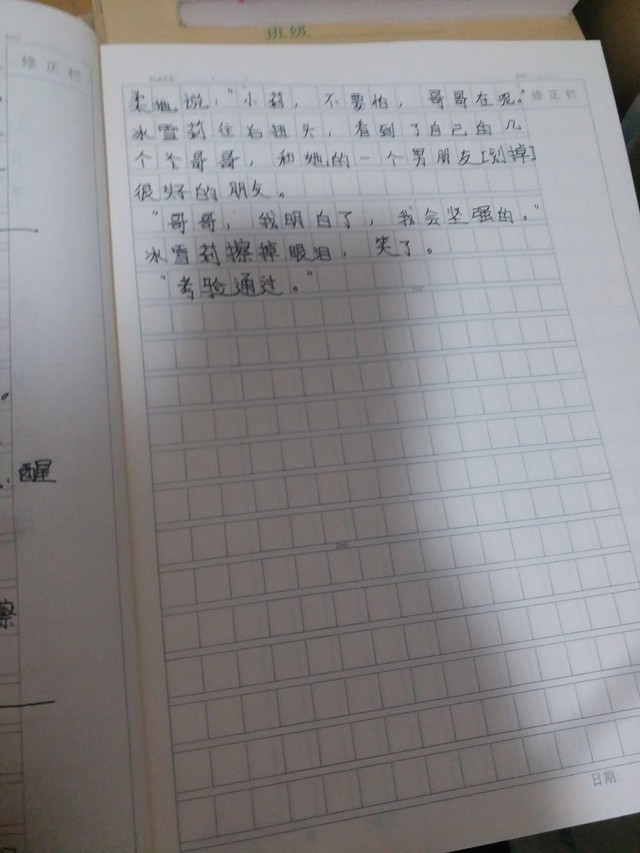 班级
NO.
DATE
NO.
修正栏
修正栏
柔地说，“小莉，不要怕，哥哥在呢。”
冰雪莉往右扭头，看到了自己的几
个个哥哥，和她的一个男朋友[划掉]
很好的朋友。
“哥哥，我明白了，我会坚强的。”
冰雪莉擦掉眼泪，笑了。
“考验通过。”
醒
察
200
日期: